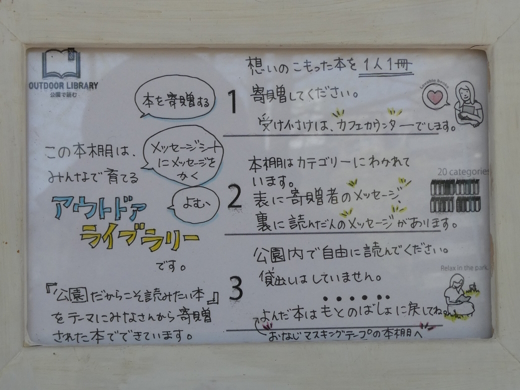 OUTDOOR LIBRARY
公園で読む
本を寄贈する
この本棚は、
みんなで育てる
メッセージシート
にメッセージを
かく
よむ
アウトドア
ライブラリー
です。
『公園だからこそ読みたい本』
をテーマにみなさんから寄贈
された本でできています。
1
想いのこもった本を1人1冊
寄贈してください。
受け付けは、カフェカウンターでします。
2
本棚はカテゴリーにわかれて
います。
表に寄贈者のメッセージ、
裏に読んだ人のメッセージがあります。
20 categories
3
公園内で自由に読んでください。
貸出しはしていません。
よんだ本はもとのばしょに戻してね。
おなじマスキングテープの本棚へ
Relax in the park